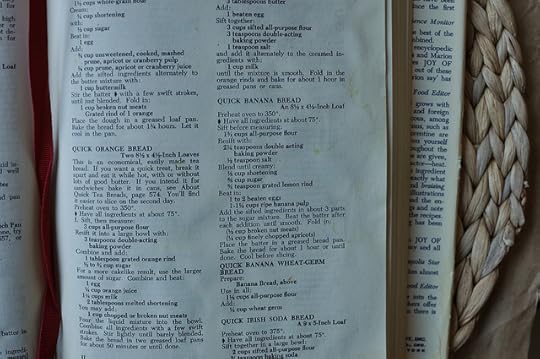 1½ cups whole-grain flour
Cream:
¼ cup shortening
with:
½ cup sugar
Beat in:
1 egg
Add:
¾ cup unsweetened, cooked, mashed
prune, apricot or cranberry pulp
¼ cup prune, apricot or cranberry juice
Add the sifted ingredients alternately to
the butter mixture with:
1 cup buttermilk
Stir the batter with a few swift strokes,
until just blended. Fold in:
1 cup broken nut meats
Grated rind of 1 orange
Place the dough in a greased loaf pan.
Bake the bread for about 1¼ hours. Let it
cool in the pan.
QUICK ORANGE BREAD
Two 8½ x 4½-Inch Loaves
This is an economical, easily made tea
bread. If you want a quick treat, break it
apart and eat it while hot, with or without
lots of good butter. If you intend it for
sandwiches bake it in cans, see About
Quick Tea Breads, page 574. You'll find
it easier to slice on the second day.
Preheat oven to 350°.
Have all ingredients at about 75°.
Sift, then measure:
3 cups all-purpose flour
Resift it into a large bowl with:
3 teaspoons double-acting
baking powder
Combine and add:
1 tablespoon grated orange rind
½ cup sugar
For a more cakelike result, use the larger
amount of sugar. Combine and beat:
1 egg
¼ cup orange juice
1¼ cups milk
2 tablespoons melted shortening
You may add:
1 cup chopped or broken nut meats
Pour the liquid mixture into the bowl.
Combine all ingredients with a few swift
strokes. Stir lightly until barely blended.
Bake the bread in two greased loaf pans
for about 50 minutes or until done.
3 tablespoons butter
Add:
1 beaten egg
Sift together:
3 cups sifted all-purpose flour
3 teaspoons double-acting
baking powder
1 teaspoon salt
and add it alternately to the creamed in-
gredients with:
1 cup milk
until the mixture is smooth. Fold in the
orange rinds and bake for about 1 hour in
greased pans or cans.
QUICK BANANA BREAD
An 8½ x 4½-Inch Loaf
Preheat oven to 350°.
Have all ingredients at about 75°.
Sift before measuring:
1¾ cups all-purpose flour
Resift with:
2¼ teaspoons double-acting
baking powder
½ teaspoon salt
Blend until creamy:
⅓ cup shortening
⅔ cup sugar
¾ teaspoon grated lemon rind
Beat in:
1 to 2 beaten eggs
1-1¼ cups ripe banana pulp
Add the sifted ingredients in about 3 parts
to the sugar mixture. Beat the batter after
each addition until smooth. Fold in:
(½ cup broken nut meats)
(¼ cup finely chopped apricots)
Place the batter in a greased bread pan.
Bake the bread for about 1 hour or until
done. Cool before slicing.
QUICK BANANA WHEAT-GERM
BREAD
Prepare:
Banana Bread, above
Use in all:
1¼ cups all-purpose flour
Add:
¼ cup wheat germ
QUICK IRISH SODA BREAD
A 9 x 5-Inch Loaf
Preheat oven to 375°.
Have all ingredients at about 75°.
Sift together in a large bowl:
2 cups sifted all-purpose flour
baking soda
Science Monitor
the best of the
combined.
encyclopedic
and Marion
JOY OF
out of these
say has
Food Editor
grows with
foreign
among
such as
you yourself
throughout the
are given,
ingredient
exactly what
and braising
illustrations
and now
the recipes
has been
JOY OF
and all
Star
almost
Food Editor
into the
them offers
is
YORK